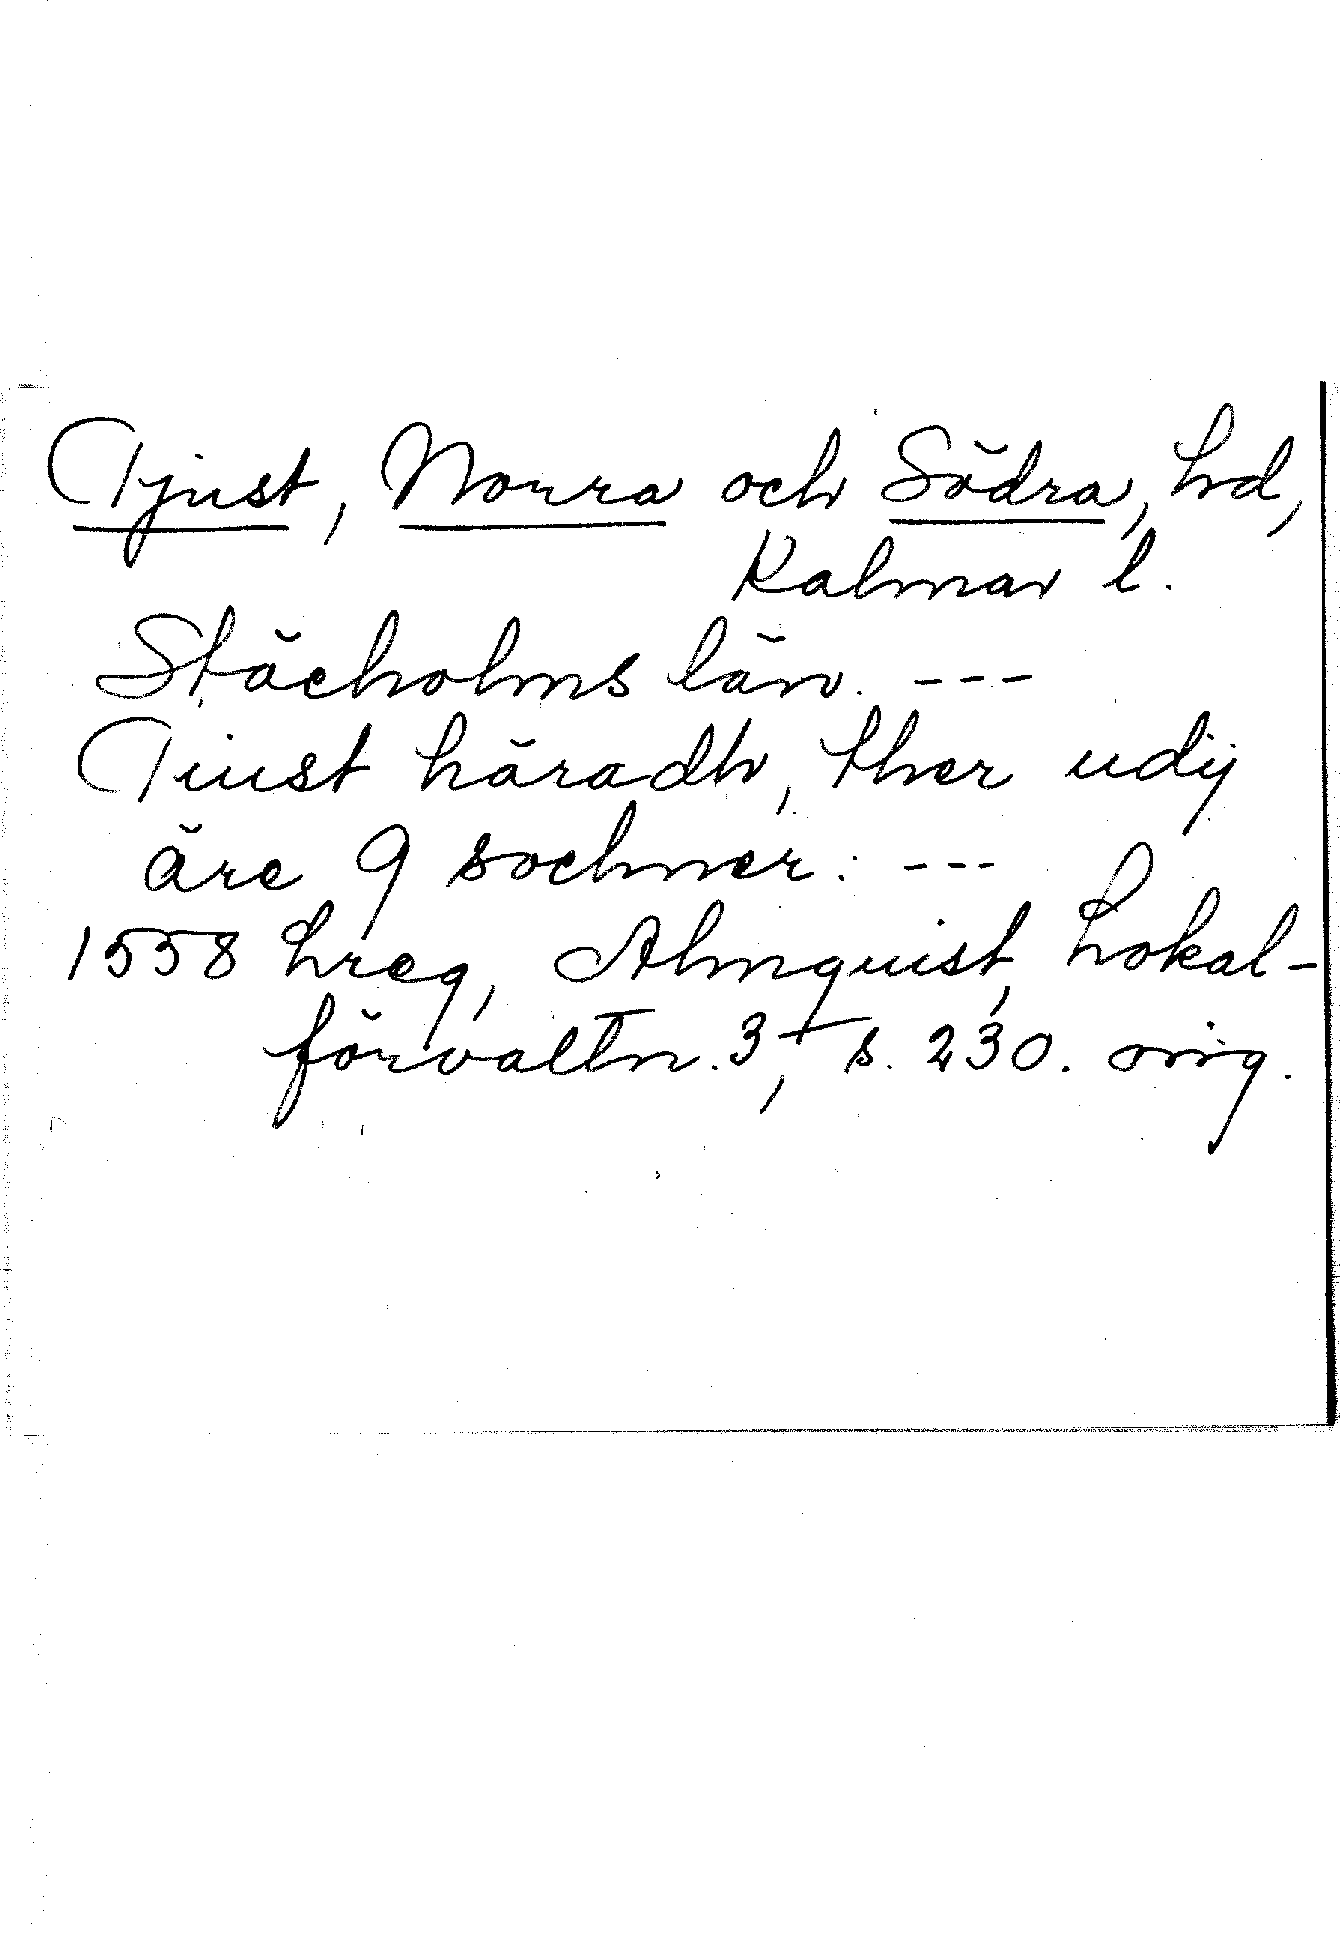 Tjust, Norra och Södra, hd,
Kalmar l.
Stächolms län. ---
Tiust häradh, ther udij
äre 9 sochner: ---
1558 hreg, Almquist, Lokal-
förvaltn. 3, s. 230. orig.